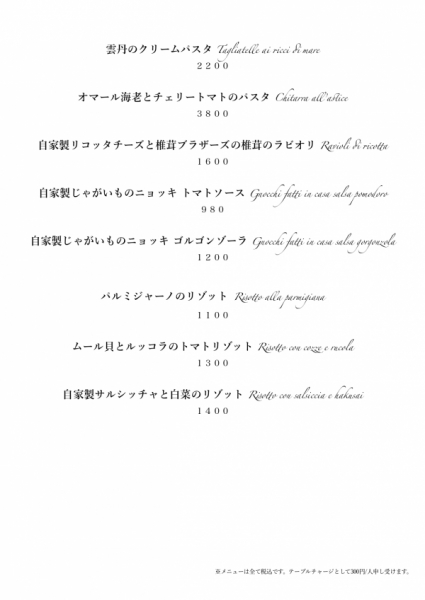 雲丹のクリームパスタ Tagliatelle ai ricci di mare
2200
オマール海老とチェリートマトのパスタ Chitarra all'astice
3800
自家製リコッタチーズと椎茸ブラザーズの椎茸のラビオリ Ravioli di ricotta
1600
自家製じゃがいものニョッキ トマトソース Gnocchi fatti in casa salsa pomodoro
980
自家製じゃがいものニョッキ ゴルゴンゾーラ Gnocchi fatti in casa salsa gorgonzola
1200
パルミジャーノのリゾット Risotto alla parmigiana
1100
ムール貝とルッコラのトマトリゾット Risotto con cozze e rucola
1300
自家製サルシッチャと白菜のリゾット Risotto con salsiccia e hakusai
1400
※メニューは全て税込です。テーブルチャージとして300円/人申し受けます。